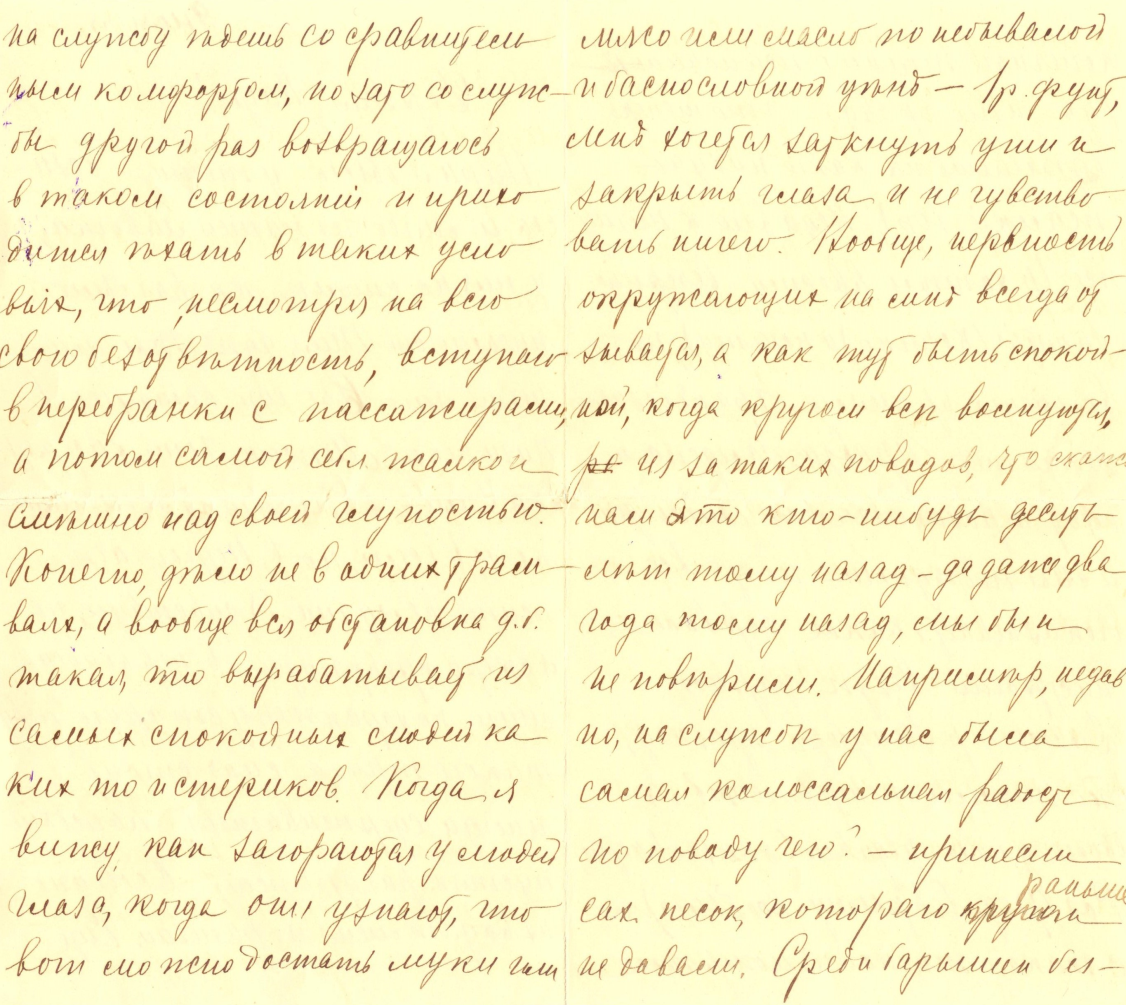 на службу ѣдешь со сравнитель
ным комфортом, но зато со служ-
бы другой раз возвращаюсь
в таком состояніи и прихо
дится ѣхать в таких усло
віях, что, несмотря на всю
свою безотвѣтность, вступаю
в перебранки с пассажирами,
а потом самой себя жалко и
смѣшно над своей глупостью.
Конечно, дѣло не в одних трам-
ваях, а вообще вся обстановка д.б.
такая, что вырабатывает из
самых спокойных людей ка
ких то истериков. Когда я
вижу, как загораются у людей
глаза, когда они узнают, что
вот можно достать муки или
мясо или масло по небывалой
и баснословной цѣнѣ — 1р. фунт,
мнѣ хочется заткнуть уши и
закрыть глаза и не чувство
вать ничего. Вообще, нервность
окружающих на мнѣ всегда от
зывается, а как тут быть спокой-
ной, когда кругом всѣ волнуются,
из за таких поводов, что скажи
нам это кто-нибудь десять
лѣт тому назад - да даже два
года тому назад, мы бы и
не повѣрили. Напримѣр, недав
но, на службѣ у нас была
самая колоссальная радость
по поводу чего? — принесли
сах. песок, котораго раньше
не давали. Среди барышен без-